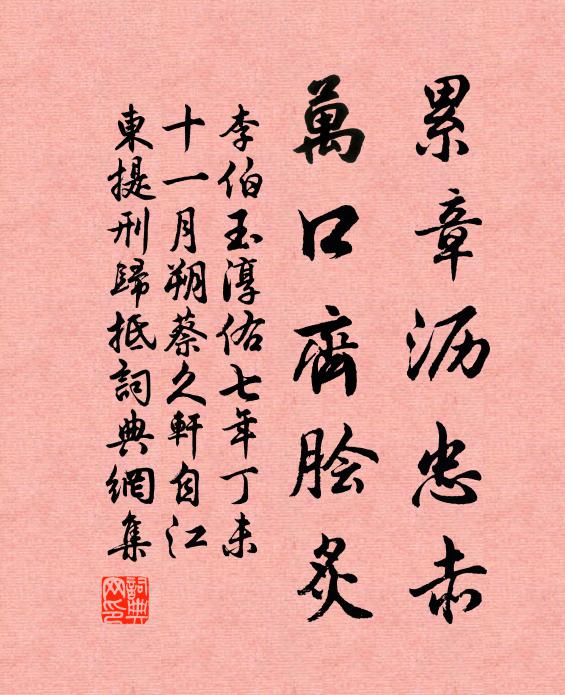 累章沥忠赤
萬口齊脍炙
李伯玉淳佑七年丁未
十一月朔蔡久軒自江
東提刑歸抵詞典網集
詞典
网印